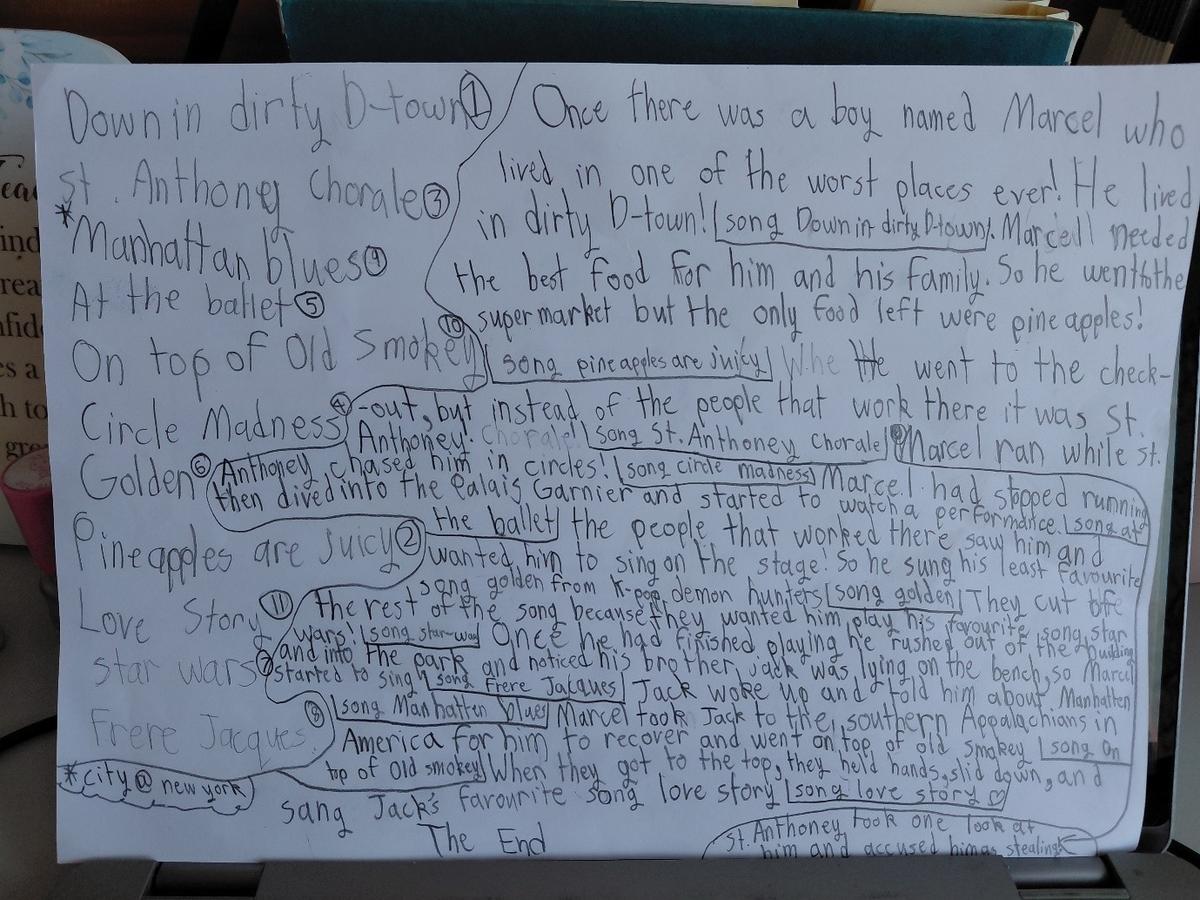 Down in dirty D-town ①
St. Anthoney Chorale ③
*Manhattan blues ⑨
At the ballet ⑤
On top of Old Smokey ⑩
Circle Madness ④
Golden ⑥
Pineapples are juicy ②
Love Story ⑪
star wars ⑦
Frere Jacques ⑧
*city @ new york
Once there was a boy named Marcel who
lived in one of the worst places ever! He lived
in dirty D-town! song Down in dirty D-town. Marcell needed
the best food for him and his family. So he went to the
supermarket but the only food left were pineapples!
song pineapples are juicy Whe He went to the check-
-out, but instead of the people that work there it was St.
Anthoney! Chorale! song St. Anthoney Chorale Marcel ran while st.
Anthoney chased him in circles! song circle madness Marcel had stopped running
then dived into the Palais Garnier and started to watch a performance. song at
the ballet the people that worked there saw him and
wanted him to sing on the stage! So he sung his least favourite
song golden from K-pop demon hunters song golden They cut off
the rest of the song because they wanted him play his favourite song, star
wars! song star-war Once he had finished playing he rushed out of the building
and into the park and noticed his brother, Jack was lying on the bench, so Marcel
started to sing song Frere Jacques Jack woke up and told him about Manhatten
song Manhatten blues Marcel took Jack to the southern Appalachians in
America for him to recover and went on top of old smokey song on
top of Old smokey When they got to the top, they held hands, slid down, and
sang Jack's favourite song love story song love story ♡
The End
St. Anthoney took one look at
him and accused him as stealing